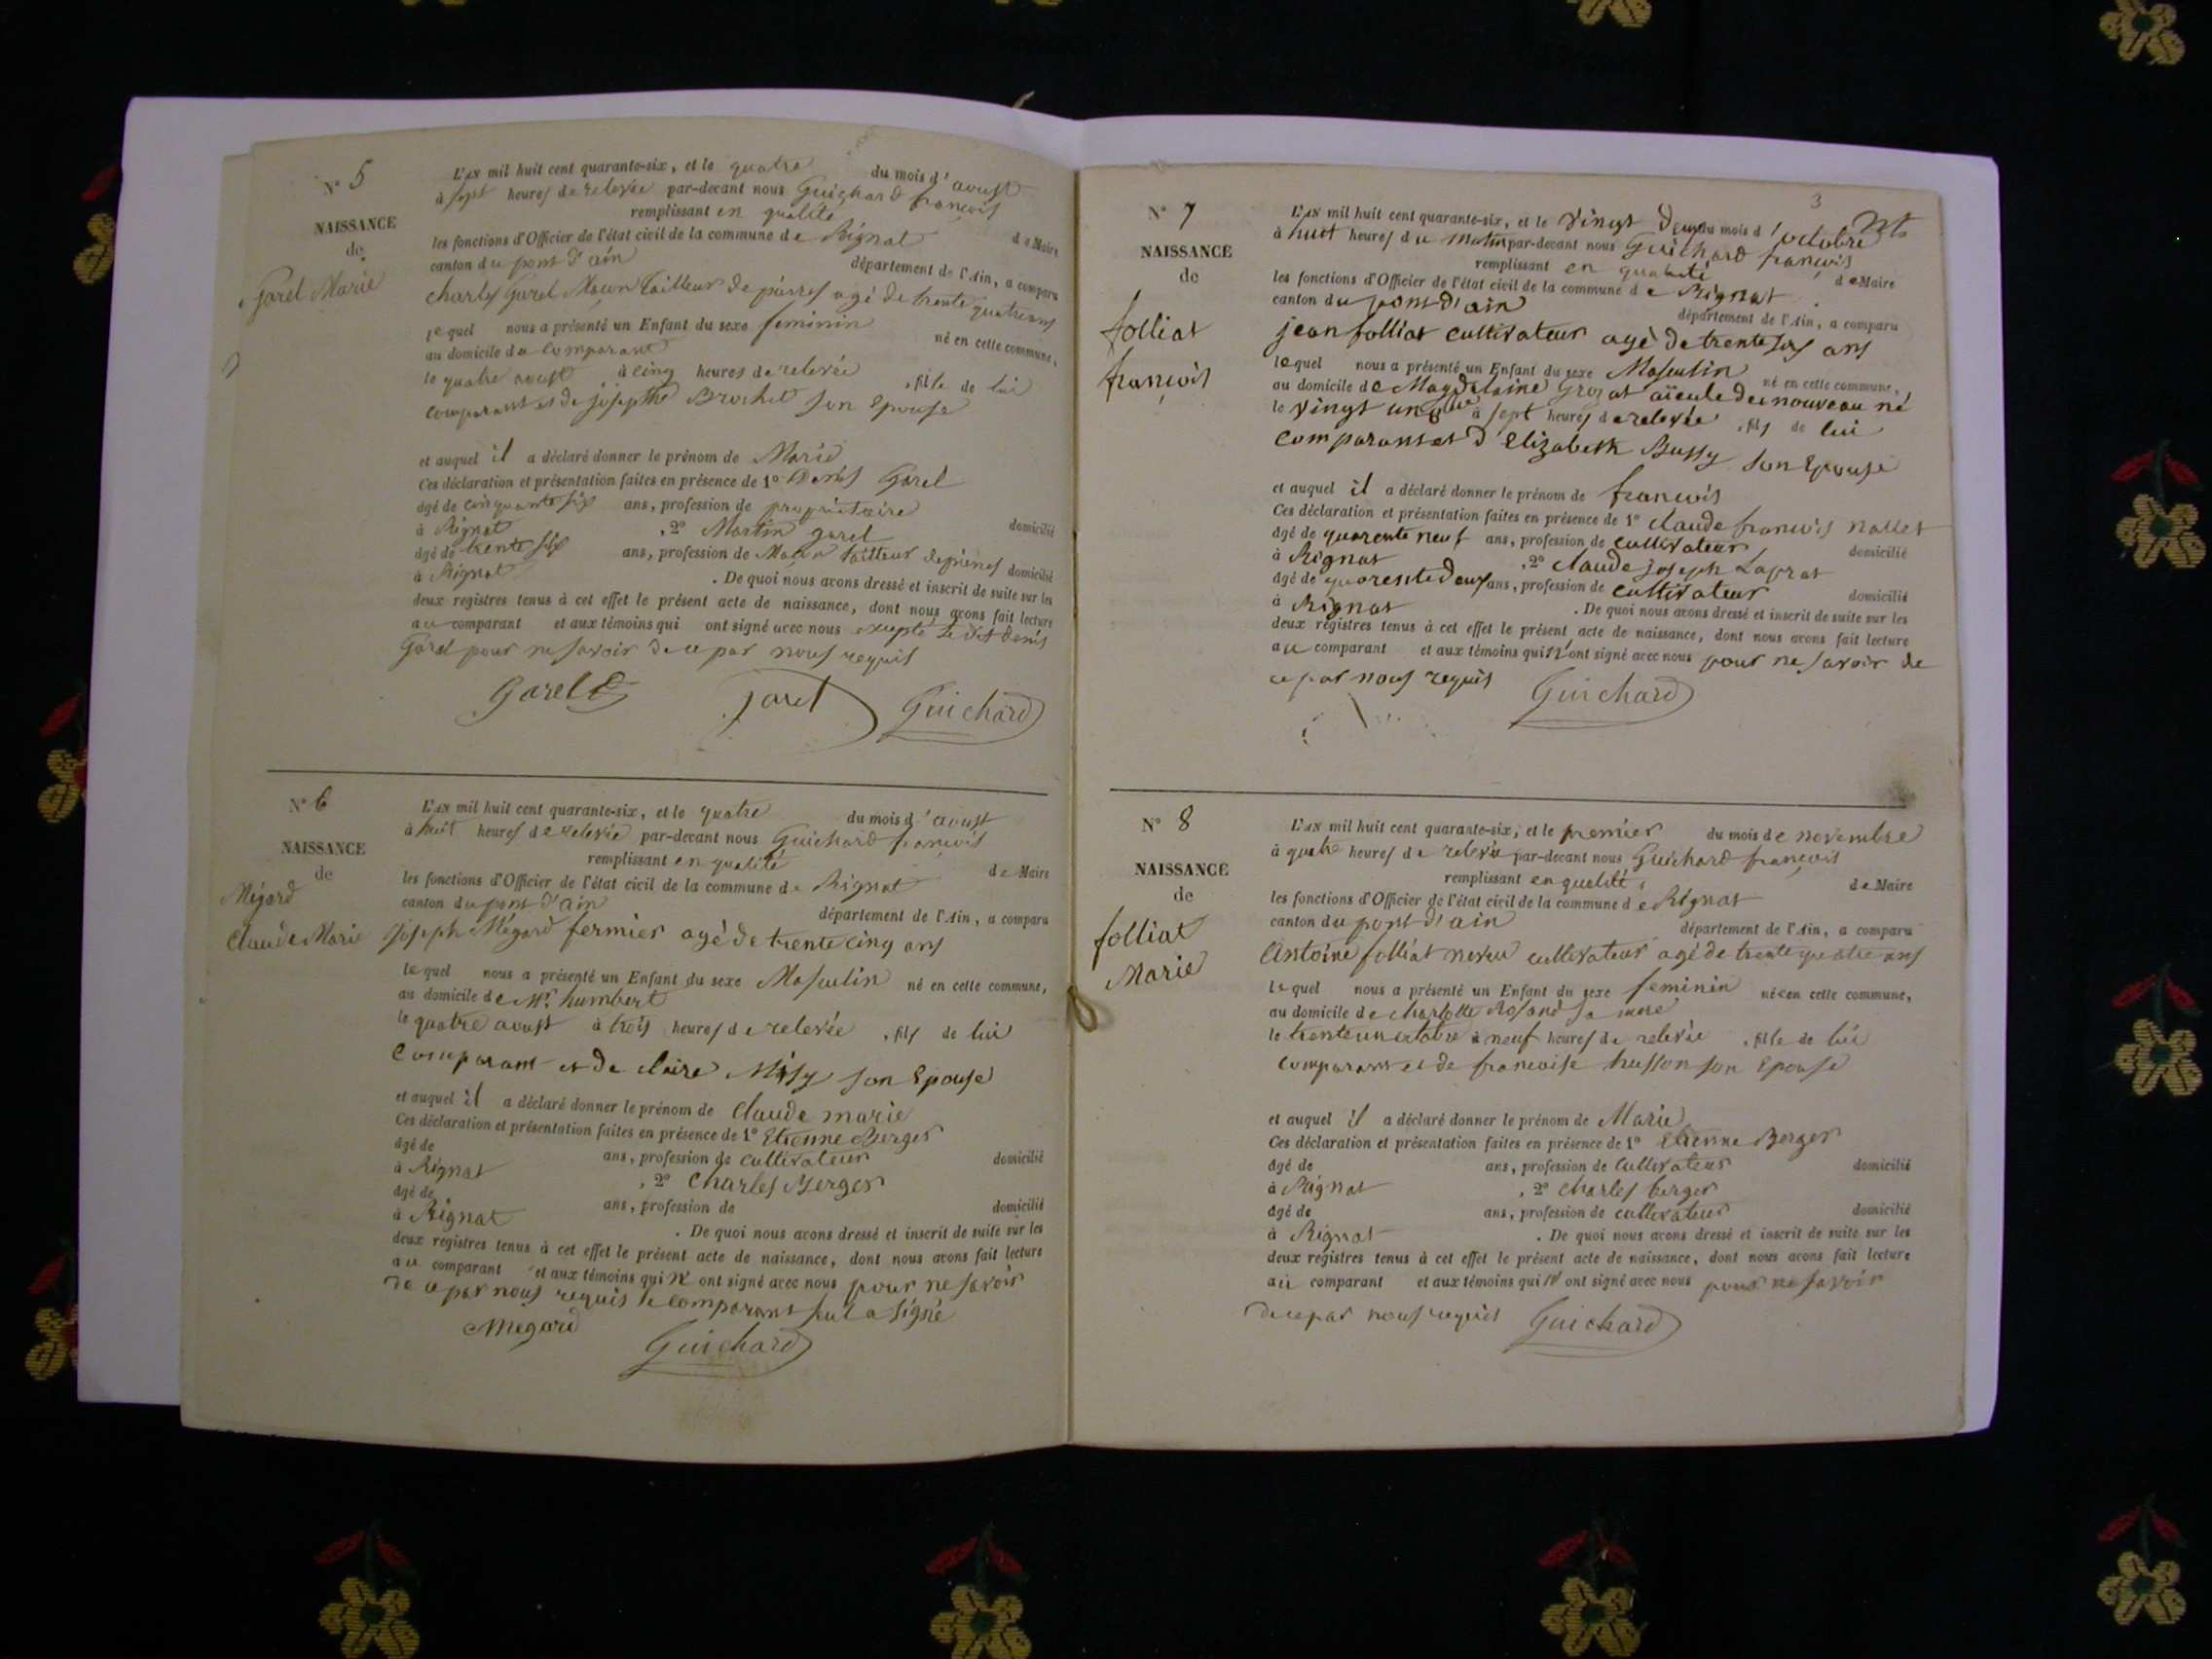 N° 5
NAISSANCE
de
Garel Marie
L'AN mil huit cent quarante-six, et le quatre du mois d'aoust
à sept heures de relevée par-devant nous Guichard françois
remplissant en qualité de Maire
les fonctions d'Officier de l'état civil de la commune de Rignat
canton du pont d'ain département de l'Ain, a comparu
charles Garel Maçon tailleur de pierres agé de trente quatre ans
lequel nous a présenté un Enfant du sexe feminin né en cette commune,
au domicile du comparant
le quatre aoust à cinq heures de relevée , fille de lui
comparant et de josephte Brochet son Epouse
et auquel il a déclaré donner le prénom de Marie
Ces déclaration et présentation faites en présence de 1° Denis Garel
âgé de cinquante six ans, profession de propriétaire domicilié
à Rignat , 2° Martin garel
âgé de trente six ans, profession de Maçon tailleur de pierres domicilié
à Rignat . De quoi nous avons dressé et inscrit de suite sur les
deux registres tenus à cet effet le présent acte de naissance, dont nous avons fait lecture
au comparant et aux témoins qui ont signé avec nous excepté le dit denis
Garel pour ne savoir de ce par nous requis
Garel Garel Guichard
N° 6
NAISSANCE
de
Mégard
Claude Marie
L'AN mil huit cent quarante-six, et le quatre du mois d'aoust
à huit heures de relevée par-devant nous Guichard françois
remplissant en qualité de Maire
les fonctions d'Officier de l'état civil de la commune de Rignat
canton du pont d'ain département de l'Ain, a comparu
joseph Mégard fermier agé de trente cinq ans
lequel nous a présenté un Enfant du sexe Masculin né en cette commune,
au domicile de Mr humbert
le quatre aoust à trois heures de relevée , fils de lui
Comparant et de claire Missy son Epouse
et auquel il a déclaré donner le prénom de Claude marie
Ces déclaration et présentation faites en présence de 1° Etienne Berger
âgé de ans, profession de cultivateur domicilié
à Rignat , 2° Charles Berger
âgé de ans, profession de domicilié
à Rignat . De quoi nous avons dressé et inscrit de suite sur les
deux registres tenus à cet effet le présent acte de naissance, dont nous avons fait lecture
au comparant et aux témoins qui n'ont signé avec nous pour ne savoir
de ce par nous requis le comparant seul a signé
Megard Guichard
3
N° 7
NAISSANCE
de
folliat
françois
L'AN mil huit cent quarante-six, et le vingt deux du mois d'octobre
à huit heures du matin par-devant nous Guichard françois
remplissant en qualité de Maire
les fonctions d'Officier de l'état civil de la commune de Rignat
canton du pont d'ain département de l'Ain, a comparu
jean folliat cultivateur agé de trente six ans
lequel nous a présenté un Enfant du sexe Masculin né en cette commune,
au domicile de Magdelaine Grozat aïeule du nouveau né
le vingt un à sept heures de relevée , fils de lui
comparant et d'Elizabeth Bussy son Epouse
et auquel il a déclaré donner le prénom de françois
Ces déclaration et présentation faites en présence de 1° claude françois nallet
âgé de quarente neuf ans, profession de cultivateur domicilié
à Rignat , 2° claude joseph Laprat
âgé de quarente deux ans, profession de cultivateur domicilié
à Rignat . De quoi nous avons dressé et inscrit de suite sur les
deux registres tenus à cet effet le présent acte de naissance, dont nous avons fait lecture
au comparant et aux témoins qui n'ont signé avec nous pour ne savoir de
ce par nous requis Guichard
N° 8
NAISSANCE
de
folliat
Marie
L'AN mil huit cent quarante-six, et le premier du mois de novembre
à quatre heures de relevée par-devant nous Guichard françois
remplissant en qualité de Maire
les fonctions d'Officier de l'état civil de la commune de Rignat
canton du pont d'ain département de l'Ain, a comparu
Antoine folliat neveu cultivateur agé de trente quatre ans
lequel nous a présenté un Enfant du sexe feminin née en cette commune,
au domicile de charlotte sa mere
le trente un octobre à neuf heures de relevée , fille de lui
comparant et de francoise husson son Epouse
et auquel il a déclaré donner le prénom de Marie
Ces déclaration et présentation faites en présence de 1° Etienne Berger
âgé de ans, profession de cultivateur domicilié
à Rignat , 2° charles berger
âgé de ans, profession de cultivateur domicilié
à Rignat . De quoi nous avons dressé et inscrit de suite sur les
deux registres tenus à cet effet le présent acte de naissance, dont nous avons fait lecture
au comparant et aux témoins qui n'ont signé avec nous pour ne savoir
de ce par nous requis Guichard